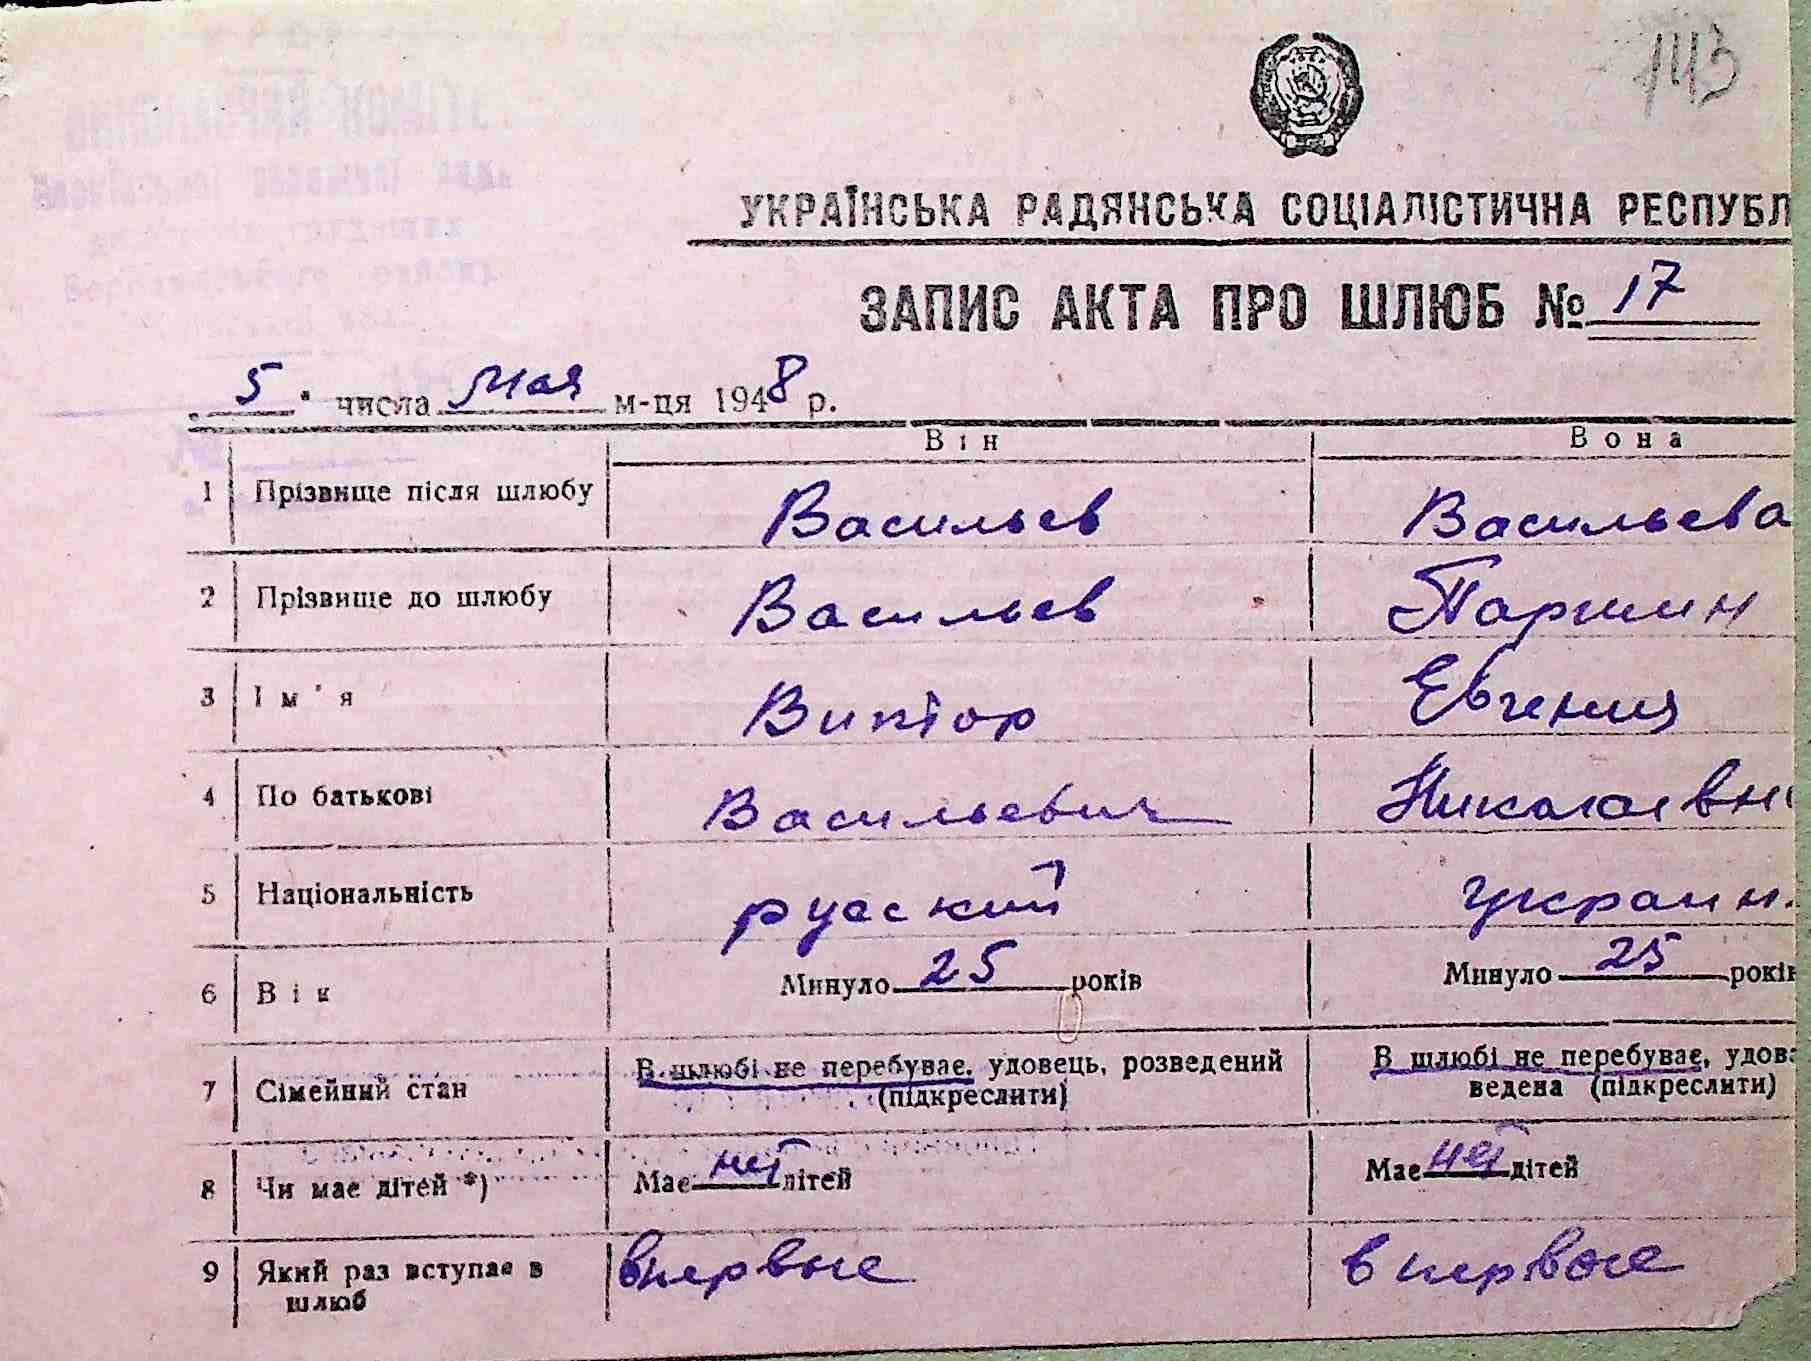 143
УКРАЇНСЬКА РАДЯНСЬКА СОЦІАЛІСТИЧНА РЕСПУБЛ
ЗАПИС АКТА ПРО ШЛЮБ № 17
„ 5 " числа мая м-ця 1948 р.
Він Вона
1 Прізвище після шлюбу Васильев Васильева
2 Прізвище до шлюбу Васильев Паршин
3 Ім'я Виктор Евгения
4 По батькові Васильевич Николаевн
5 Національність русский украин.
6 Вік Минуло 25 років Минуло 25 років
7 Сімейний стан В шлюбі не перебуває, удовець, розведений (підкреслити) В шлюбі не перебуває, удов ведена (підкреслити)
8 Чи має дітей *) Має нет дітей Має нет дітей
9 Який раз вступає в шлюб впервые впервые